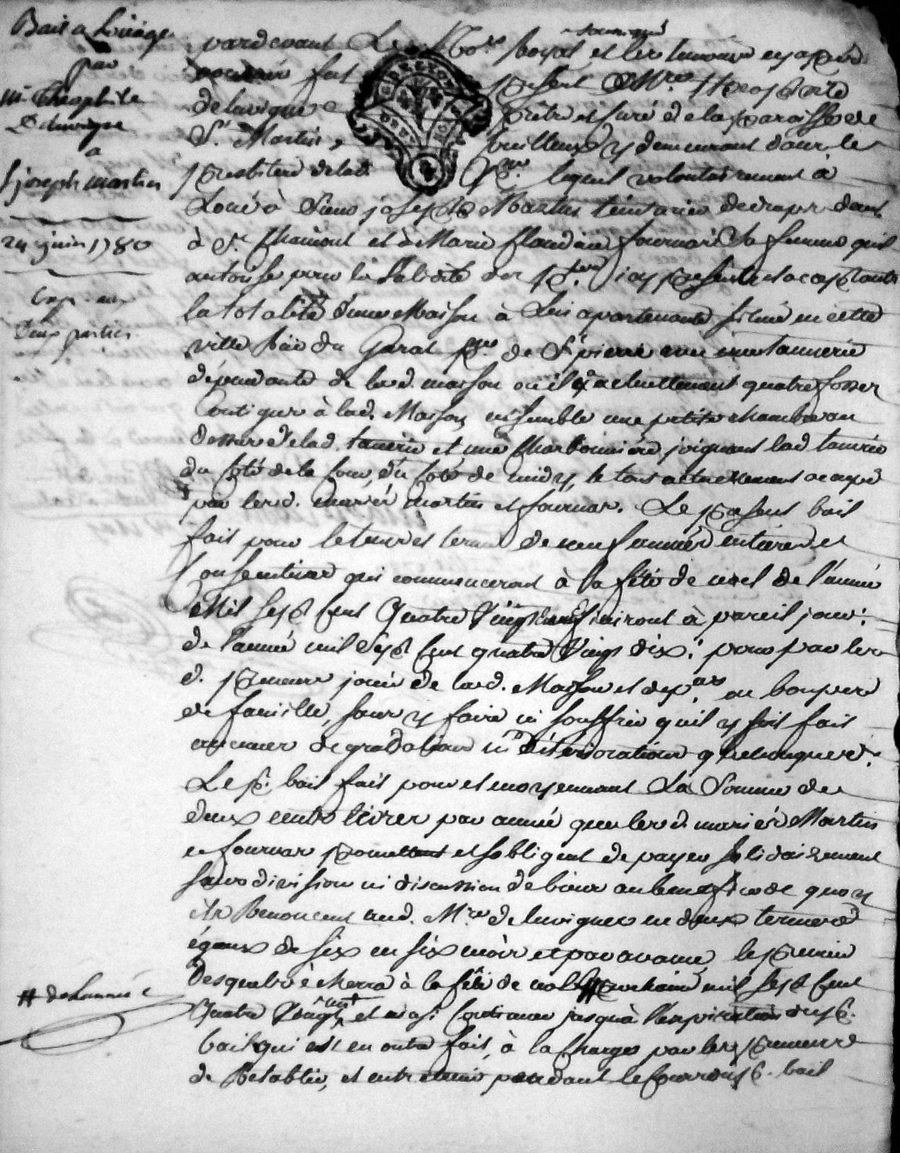 Bail a Louage
par
Mre Theophile
Delavigne
a
S. joseph martin
24 juin 1780
Exp. aux
Deux parties
pardevant Le No.re Royal soussigné et les temoins cy apres
fut present Mre Theophile
delavigne pretre et curé de la paroisse de
St Martin, y demeurant dans le
presbitere de lad. lequel volontairement à
Loué à Sieur joseph Martin teinturier de draps dans
à St Chamont et à Marie Claudine fournas sa femme quil
autorise pour la validité des icy presents et acceptants
la totalité d'une Maison à Lui apartenante située en cette
ville Rue du Garat psse de St pierre avec une tannerie
dépendante de lad. maison où il y a actuellement quatre fosses
Contigue à lad. Maison ensemble une petite chambre au
dessus de lad. tanerie et une Charbonniere joignant lad tanerie
du Coté de la Cour, du Coté de midy, le tout actuellement ocupé
par lesd. mariés martin et fournas. Le present bail
fait pour le tems et terme de neuf années entieres et
Consecutives qui commenceront à la fête de noel de l'année
Mil Sept Cent Quatre Vingt finiront à pareil jour
de l'année mil Sept Cent quatre Vingt dix: pour par les
d. preneurs jouir de lad. Maison et dep.ces en bon pere
de famille, sans y faire ni souffrir quil y soit fait
aucunes degradations ni déterioration quelconques.
Le p. bail fait pour et moyennant La Somme de
deux cents livres par année que lesd. mariés Martin
et fournas promettent et s'obligent de payer solidairement
sans division ni discussion de biens au benefice de quoy
ils Renoncent aud. Mre delavigne en deux termes
égaux de six en six mois et par avance, le premier
desquels écherra à la fête de noel # prochaine mil sept cent
Quatre Vingt et ainsi Continuer jusqu'à l'expiration dup.
bail qui est en outre fait, à la Charge par les preneurs
de Retablir, et entretenir pendant le Cours dup. bail
# de l'année